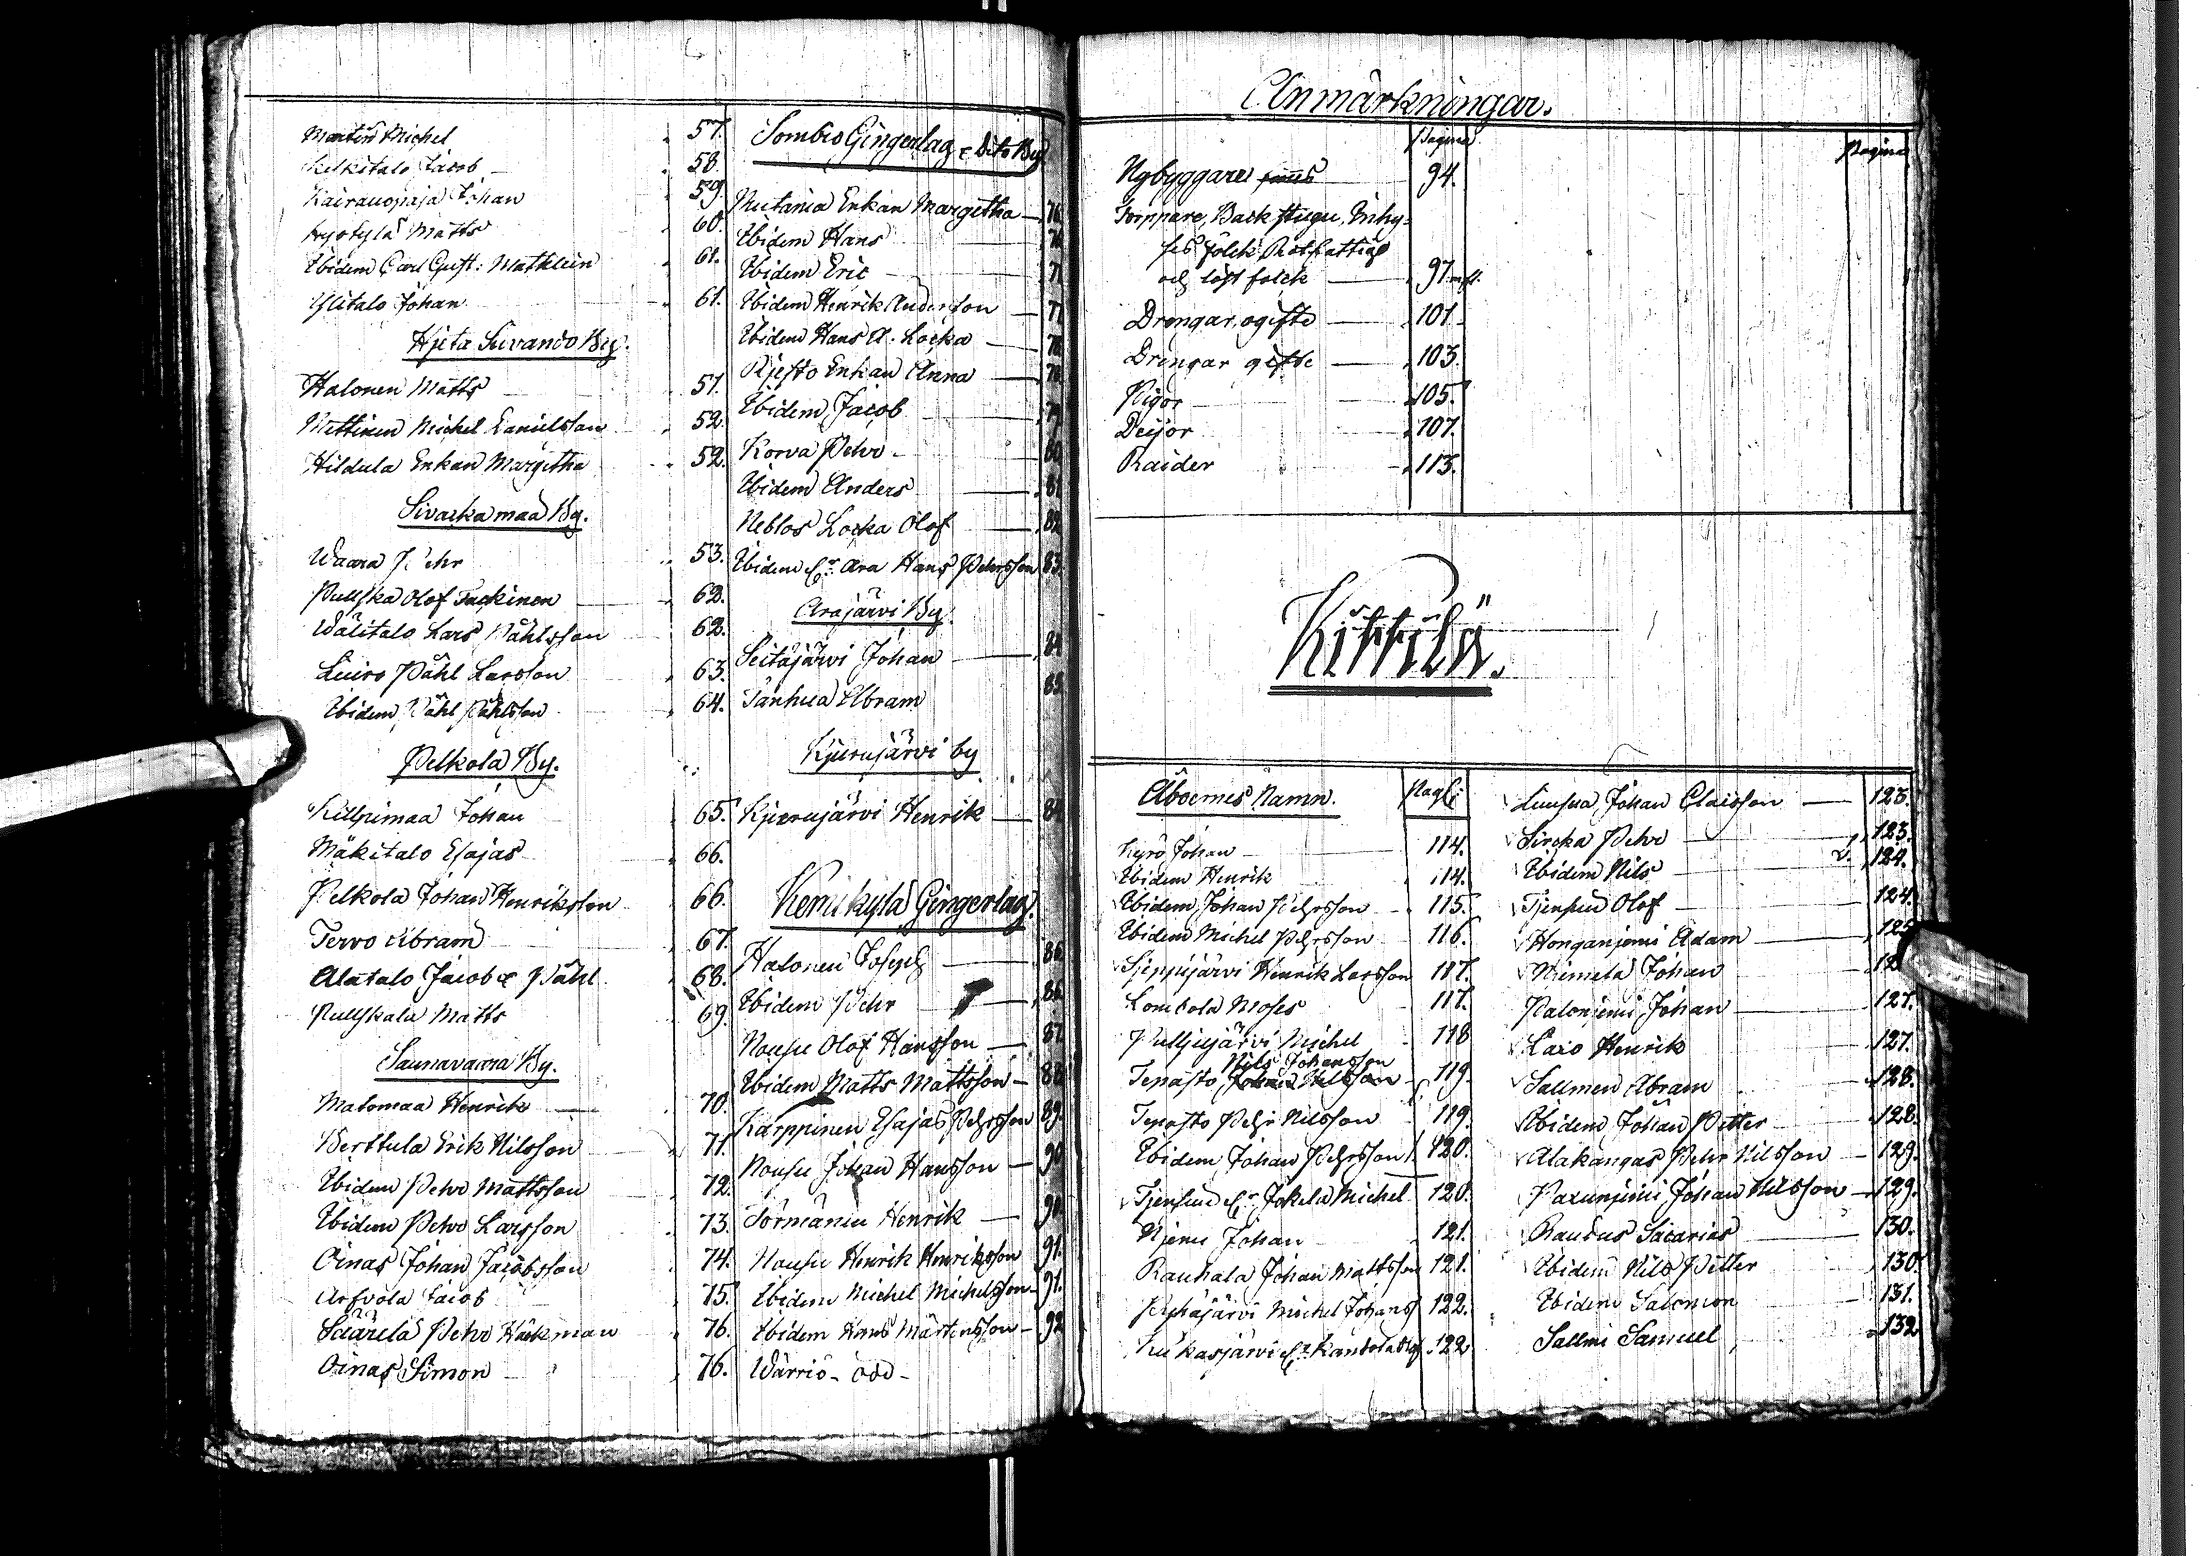 Martin Michel 57.
Kelkitalo Jacob 58.
Kairanopaja Johan 59.
Kyrkylä Matts 60.
Ibidem Carl Gust: Mathlein 61.
Ylitalo Johan 61.
Hjeta Suvando By.
Halonen Matts 51.
Mattinen Michel Danielsson 52.
Hildula Enkan Margetha 52.
Sivackamaa By.
Waara Pehr 53.
Pullska Olof Tackinen 62.
Wälitalo Lars Påhlsson 62.
Luiro Påhl Larsson 63.
Ibidem Påhl Påhlsson 64.
Pelkola By.
Kilpimaa Johan 65.
Mäkitalo Esajas 66.
Pelkola Johan Henriksson 66.
Tervo Abram 67.
Alatalo Jacob & Påhl 68.
Pullskala Matts 69.
Saunavaara By.
Matomaa Henrik 70.
Perttula Erik Nilsson 71.
Ibidem Pehr Mattsson 72.
Ibidem Pehr Larsson 73.
Oinas Johan Jacobsson 74.
Arfvola Jacob 75.
Säärelä Pehr Häckman 76.
Oinas Simon 76.
Sombio Gingerlag & Dito By
Mutania Enkan Margetha 76
Ibidem Hans 76
Ibidem Eric 77
Ibidem Henrik Andersson 77
Ibidem Hans A. Locka 78
Rjesto Enkan Anna 78
Ibidem Jacob 79
Korva Pehr 80
Ibidem Anders 81
Neblos Locka Olof 82
Ibidem Er Ara Hans Pehrsson 83
Arajärvi By.
Seitajärvi Johan 84
Tanhua Abram 85
Kjerujärvi by
Kjerujärvi Henrik 84
Kemikylä Gingerlag.
Halonen Joseph 86
Ibidem Pehr 86
Nousu Olof Hansson 87
Ibidem Matts Mattsson 88
Karppinen Esajas Pehrsson 89
Nousu Johan Hansson 90
Törmänen Henrik 90
Nousu Henrik Henriksson 91.
Ibidem Michel Michelsson 91.
Ibidem Hans Mårtensson 92
Wärriö - öde -
Anmärkningar.
Pagina Pagina
Nybyggare 94.
Torppare, Backstugu, Inhy-
ses Folck Rotfattige
och löst folck 97. mfl.
Drengar, ogifte 101.
Drengar gifte 103.
Pigor 105.
Deijor 107.
Raider 113.
Kittilä.
Åboernes Namn. Pag:
Kyrö Johan 114.
Ibidem Henrik 114.
Ibidem Johan Pehrsson 115.
Ibidem Michel Pehrsson 116.
Sjeppijärvi Henrik Larsson 117.
Lombola Moses 117.
Pulljujärvi Michel 118
Nils Johansson
Tepasto Johan Nilsson 119.
Tepasto Pehr Nilsson 119.
Ibidem Johan Pehrsson 120.
Tjensuu Er Jokela Michel 120.
Njemi Johan 121.
Rauhala Johan Mattsson 121.
Pyhäjärvi Michel Johans 122.
Kukasjärvi Er Kandola 122
Luusua Johan Claisson 123.
Sircka Pehr 123.
Ibidem Nils 124.
Tjensuu Olof 124.
Honganjemi Adam 125
Niemela Johan 12
Palonjemi Johan 127.
Laxo Henrik 127.
Sallmen Abram 128.
Ibidem Johan Petter 128.
Alakangas Pehr Nilsson 129.
Paxunjemi Johan Nilsson 129.
Raudus Sacarias 130.
Ibidem Nils Petter 130.
Ibidem Salomon 131.
Sallmi Samuel 132